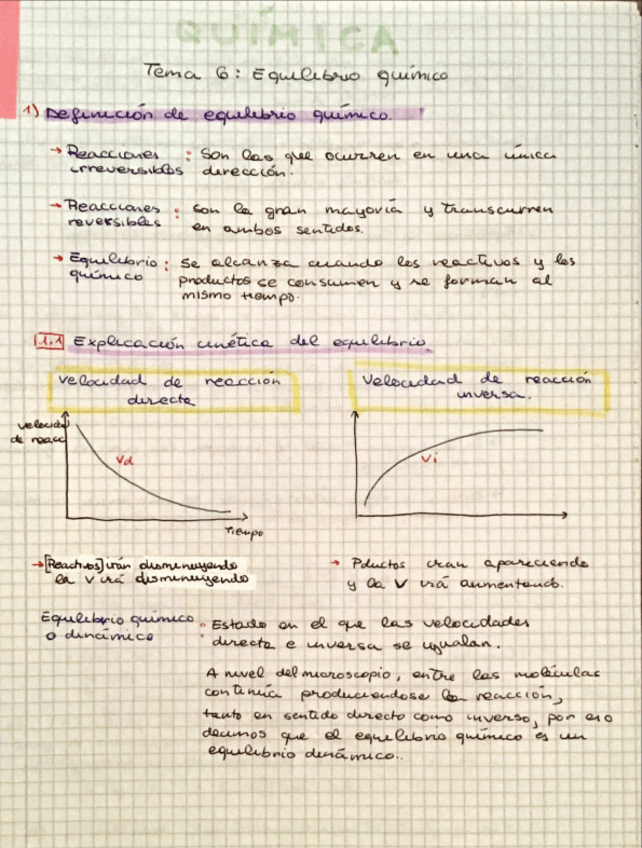 QUÍMICA
Tema 6: Equilibrio químico
1) Definición de equilibrio químico.
→ Reacciones irreversibles : Son las que ocurren en una única
dirección.
→ Reacciones reversibles : son la gran mayoría y transcurren
en ambos sentidos.
→ Equilibrio químico : Se alcanza cuando los reactivos y los
productos se consumen y se forman al
mismo tiempo.
1.1 Explicación cinética del equilibrio.
Velocidad de reacción
directa
Velocidad de reacción
inversa.
velocidad
de reacc
Vd
Tiempo
Vi
→ [Reactivos] irán disminuyendo
la v irá disminuyendo
→ Pductos iran apareciendo
y la V irá aumentando.
Equilibrio químico
o dinámico
: Estado en el que las velocidades
directa e inversa se igualan.
A nivel del microscopio, entre las moléculas
continúa produciendose la reacción,
tanto en sentido directo como inverso, por eso
decimos que el equilibrio químico es un
equilibrio dinámico..